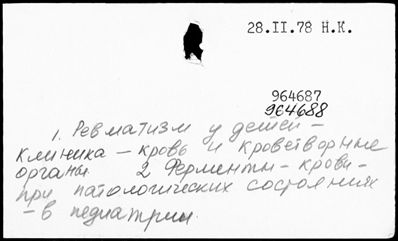 28.II.78 Н.К.
964687
964688
1. Ревматизм у детей -
клиника - кровь и кроветворные
органы 2 Ферменты - крови -
при патологических состояниях
- в педиатрии.